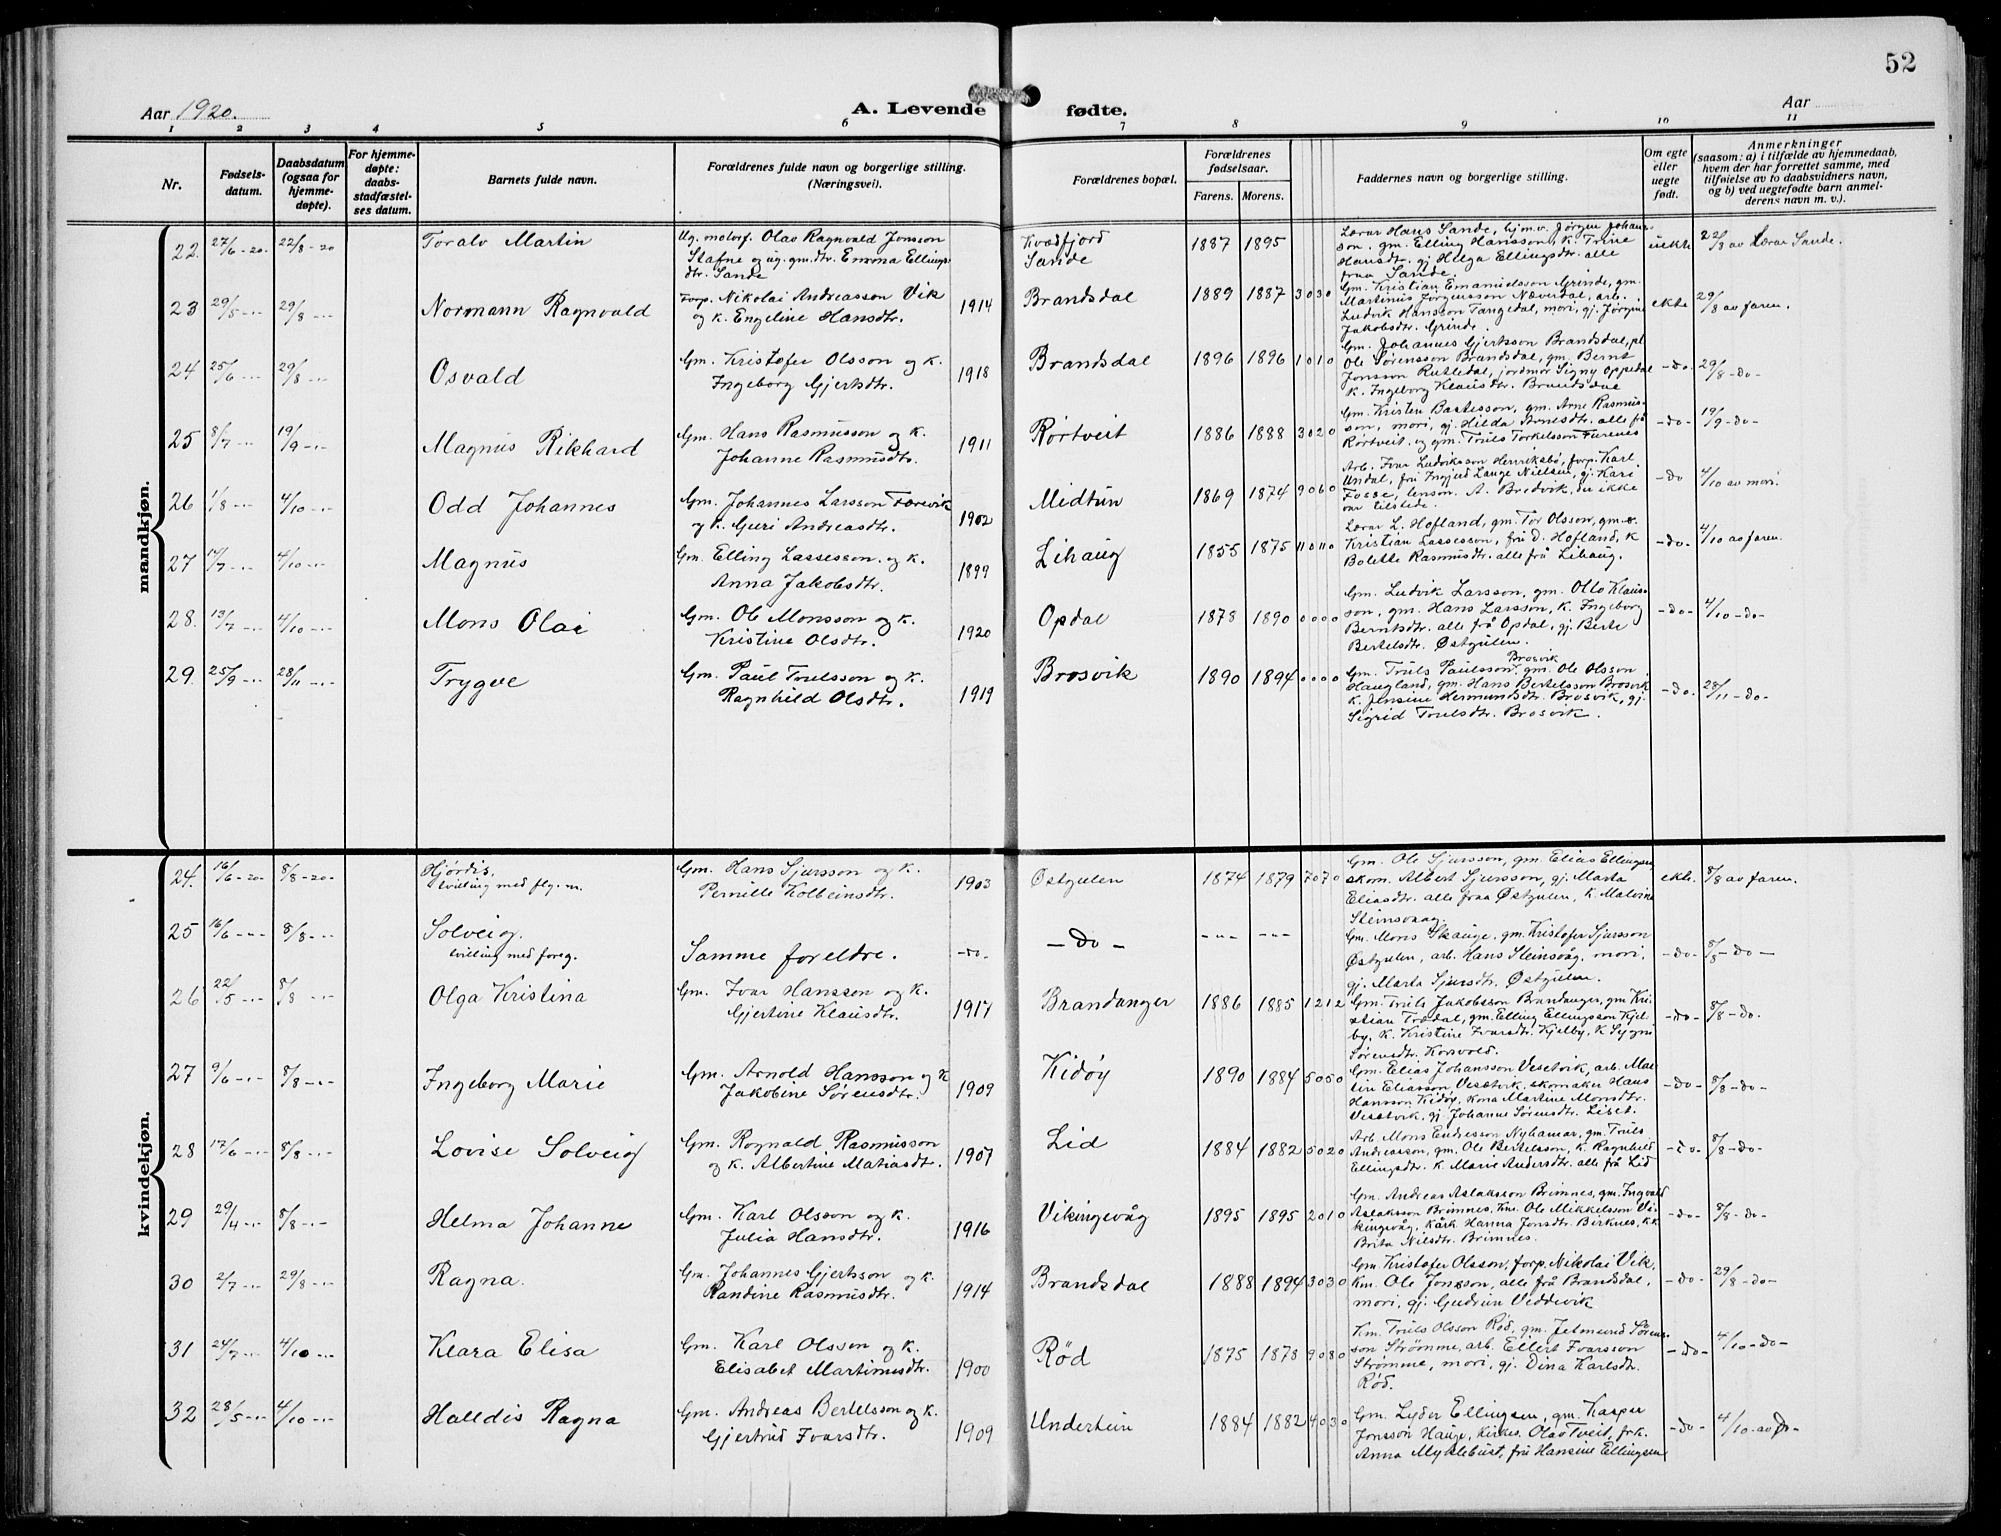 52
Aar 1920.
A. Levende fødte.
Aar
1 2 3 4 5 6 7 8 9 10 11
Nr.
Fødsels-
datum.
Daabsdatum
(ogsaa for
hjemme-
døpte).
For hjemme-
døpte:
daabs-
stadfæstel-
ses datum.
Barnets fulde navn.
Forældrenes fulde navn og borgerlige stilling.
(Næringsvei).
Forældrenes bopæl.
Forældrenes
fødselsaar.
Farens. Morens.
Faddernes navn og borgerlige stilling.
Om egte
eller
uegte
født.
Anmerkninger
(saasom: a) i tilfælde av hjemmedaab,
hvem der har forrettet samme, med
tilføielse av to daabsvidners navn,
og b) ved uegtefødte barn anmel-
derens navn m. v.).
mandkjøn.
22. 27/6-20. 22/8-20 Toralv Martin
Ug. motorf. Olav Ragnvald Jonsson
Stafne og ug. gm.dtr. Emma Ellings-
dtr. Sande
Kvedfjord
Sande
1887 1895
Lærar Hans Sande, hjm.v. Jørgen Johans-
son, gm. Elling Hansson, k. Trine
Hansdtr. gj. Helga Ellingsdtr. alle
fraa Sande.
uekte 22/8 av Lærar Sande.
23 29/5 -„- 29/8 -„- Normann Ragnvald
Forp. Nikolai Andreasson Vik
og k. Engeline Hansdtr. 1914
Brandsdal 1889 1887 3 0 3 0
Gm. Kristian Emanuelsson Grinde, gm.
Martinus Jørgensson Næverdal, arb.
Ludvik Hansson Tangedal, mori, gj. Jørgine
Jakobsdtr. Grinde.
ekte 29/8 av faren.
24 25/6 -„- 29/8 -„- Osvald
Gm. Kristofer Olsson og k.
Ingeborg Gjertsdtr. 1918
Brandsdal 1896 1896 1 0 1 0
Gm. Johannes Gjertsson Brandsdal, pl
Ole Sørensson Brandsdal, gm. Bernt
Jonsson Rutledal, jordmor Signy Oppedal
k. Ingeborg Klausdtr. Brandsdal
-do- 29/8 -do-
25 8/7 -„- 19/9 -„- Magnus Rikhard
Gm. Hans Rasmusson og k.
Johanne Rasmusdtr. 1911
Rörtveit 1886 1888 3 0 2 0
Gm. Kristen Bastesson, gm. Arne Rasmus-
son, mori, gj. Hilda Arnesdtr. alle frå
Rörtveit, og gm. Truls Torkelsson Furenes
-do- 19/9 -do-
26 1/8 -„- 4/10 -„- Odd Johannes
Gm. Johannes Larsson Torevik
og k. Guri Andreasdtr. 1902
Midtun 1869 1874 9 0 6 0
Arb. Ivar Ludviksson Henriksbø, forp. Karl
Undal, frú Ingjerd Lange Nielsen, gj. Kari
Fosse, lensm. A. Bredvik, der ikke
var tilstede.
-do 4/10 av mori.
27 17/7 -„- 4/10 -„- Magnus
Gm. Elling Lassesson og k.
Anna Jakobsdtr. 1899
Lihaug 1855 1875 11 0 11 0
Lærar L. Hofland, gm. Tor Olsson, gm.
Kristian Lassesson, frú D. Hofland, k
Bolette Rasmusdtr. alle frå Lihaug.
-do- 4/10 av faren.
28. 13/7 -„- 4/10 -„- Mons Olai
Gm. Ole Monsson og k.
Kristine Olsdtr. 1920
Opdal 1878 1890 0 0 0 0
Gm. Ludvik Larsson, gm. Olto Klaus-
son, gm. Hans Larsson, k. Ingeborg
Berntsdtr. alle frå Opdal, gj. Berte
Bertelsdtr. Østgulen.
-do- 4/10 -do-
29. 25/9 -„- 28/11 -„- Trygve
Gm. Paul Trulsson og k.
Ragnhild Olsdtr. 1919
Brosvik 1890 1894 0 0 0 0
Gm. Truls Paulsson Brosvik, gm. Ole Olsson
Haugland, gm. Hans Bertelsson Brosvik
k. Jensine Hermundsdtr. Brosvik, gj.
Sigrid Trulsdtr. Brosvik.
-do. 28/11 -do-
kvindekjøn.
24. 16/6-20. 8/8-20. Hjördis,
tvilling med flg. nr.
Gm. Hans Sjursson og k.
Pernille Kolbeinsdtr. 1903
Østgulen 1874 1879 7 0 7 0
Gm. Ole Sjursson, gm. Elias Ellingsen,
skom. Albert Sjursson, gj. Marta
Eliasdtr. alle fraa Østgulen, k. Malvine
Steinsvaag.
ekte. 8/8 av faren.
25 16/6 -„- 8/8 -„- Solveig.
tvilling med foreg.
Samme foreldre. -do-
-do- -„- -„-
Gm. Mons Skauge, gm. Kristofer Sjursson
Østgulen, arb. Hans Steinsvåg, mori,
gj. Marta Sjursdtr. Østgulen.
-do- 8/8 -do-
26 22/5 -„- 8/8 -„- Olga Kristina
Gm. Ivar Hansson og k.
Gjertine Klausdtr. 1917
Brandanger 1886 1885 1 2 1 2
Gm. Truls Jakobsson Brandanger, gm Kri-
stian Trædal, gm. Elling Ellingsson Kjel-
by, k. Kristine Ivarsdtr. Kjelby, k Sygni
Sørensdtr. Korsvold.
-do- 8/8 -do-
27 9/6 -„- 8/8 -„- Ingeborg Marie
Gm. Arnold Hansson og k
Jakobine Sørensdtr. 1909
Kidöy 1890 1884 5 0 5 0
Gm. Elias Johansson Vesetvik, arb. Mar-
tin Eliasson Vesetvik, skomaker Hans
Hansson Kidöy, kona Martine Monsdtr.
Vesetvik, gj. Johanne Sørensdtr. Liset.
-do- 8/8 -do-
28 17/6 -„- 8/8 -„- Lovise Solveig
Gm. Rognald Rasmusson
og k. Albertine Matiasdtr. 1907
Lid 1884 1882 5 0 2 0
Arb. Mons Endresson Nyhamar, gm. Truls
Andreasson, gm. Ole Bertelsson, k. Ragnhild
Ellingsdtr. k. Marie Andersdtr. alle frå Lid
-do- 8/8 -do-
29 29/4 -„- 8/8 -„- Helma Johanne
Gm. Karl Olsson og k.
Julia Hansdtr. 1916
Vikingevåg 1895 1895 2 0 1 0
Gm. Andreas Aslaksson Brimnes, gm. Ingvald
Aslakson Brimnes, Km. Ole Mikkelsson Vi-
kingevåg, kårk. Hanna Jonsdtr. Birknes, k.k.
Brita Nilsdtr. Brimnes.
-do- 8/8 -do-
30 2/7 -„- 29/8 -„- Ragna.
Gm. Johannes Gjertsson og k.
Randine Rasmusdtr. 1914
Brandsdal 1888 1894 3 0 3 0
Gm. Kristofer Olsson, forp. Nikolai Vik,
Km. Ole Jonsson, alle frå Brandsdal,
mori, gj. Gudrun Veddevik
-do- 29/8 -do-
31 24/7 -„- 4/10 -„- Klara Elisa
Gm. Karl Olsson og k.
Elisabet Martinusdtr. 1900
Röd 1875 1878 9 0 8 0
Km. Truls Olsson Röd, gm. Jetmund Sörens-
son Strömme, arb. Ellert Ivarsson
Strömme, mori, gj. Dina Karlsdtr.
Röd.
-do- 4/10 -do-
32 28/5 -„- 4/10 -„- Halldis Ragna
Gm. Andreas Bertelsson og k.
Gjertrud Ivarsdtr. 1909
Undertun 1884 1882 4 0 3 0
Gm. Lyder Ellingsen, gm. Kasper
Jonsson Hauge, kirkes. Olav Tveit, frk.
Anna Myklebust, frú Hansine Ellingsen
-do- 4/10. av do-